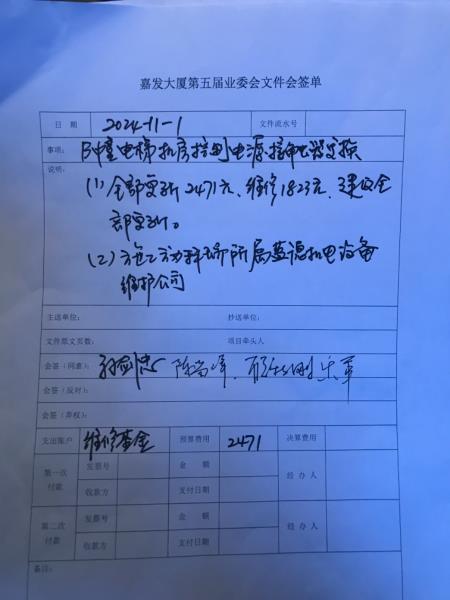 嘉发大厦第五届业委会文件会签单
日 期 2024-11-1 文件流水号
事项: B钟 电梯机房控制电源接触器更换
说明:
(1) 全部更新2471元、维修1823元,建议全
部更新。
(2) 方为 所属蓝德机电设备
维护公司
主送单位: 抄送单位:
文件原文页数: 项目牵头人
会签(同意):
会签(反对):
会签(弃权):
支出账户 维修基金 预算费用 2471 决算费用
第一次付款 发票号 金 额 经办人
收款方 支付日期
第二次付款 发票号 金 额 经办人
收款方 支付日期
备注: